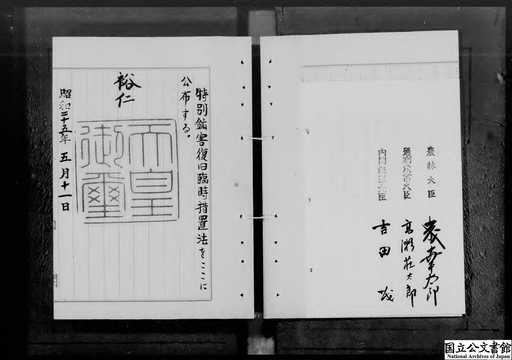 特別鉱害復旧臨時措置法をここに
公布する。
裕仁
天皇
御璽
昭和二十五年五月十一日
農林大臣
大臣
高瀬荘太郎
内閣総理大臣
吉田茂
国立公文書館
National Archives of Japan